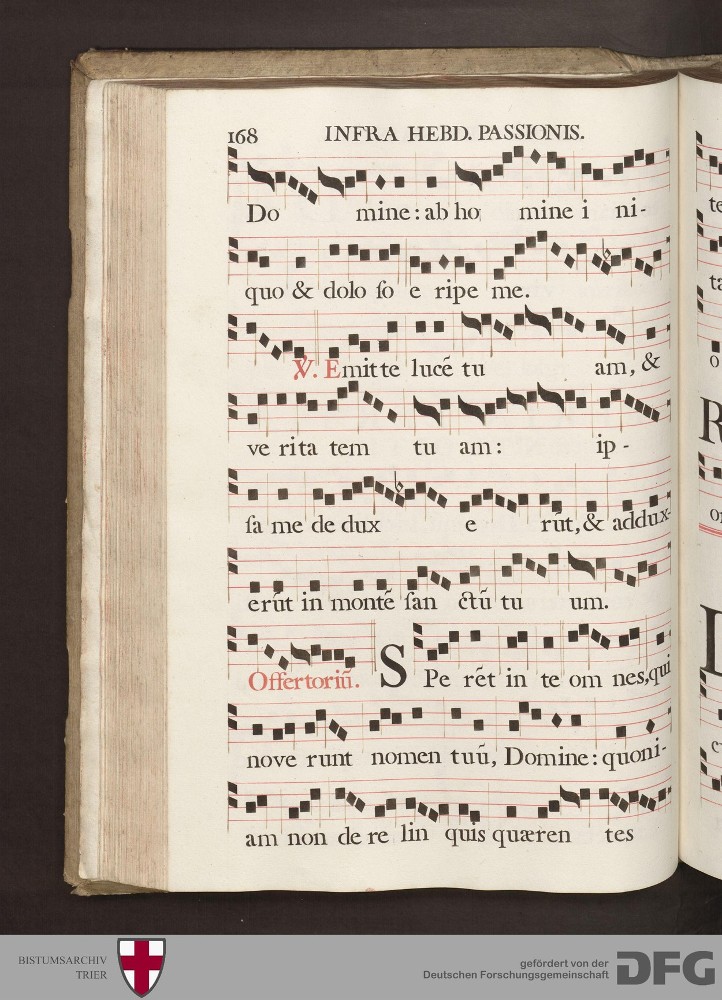 168 INFRA HEBD. PASSIONIS.
Do mine: ab ho mine i ni-
quo & dolo ſo e ripe me.
℣. Emitte lucē tu am, &
ve rita tem tu am: ip-
ſa me de dux e rūt, & addux-
erūt in montē ſan ctū tu um.
Offertoriū. SPe rēt in te om nes, qui
nove runt nomen tuū, Domine: quoni-
am non de re lin quis quæren tes
te
ta
o
R
BISTUMSARCHIV
TRIER
gefördert von der
Deutschen Forschungsgemeinschaft
DFG